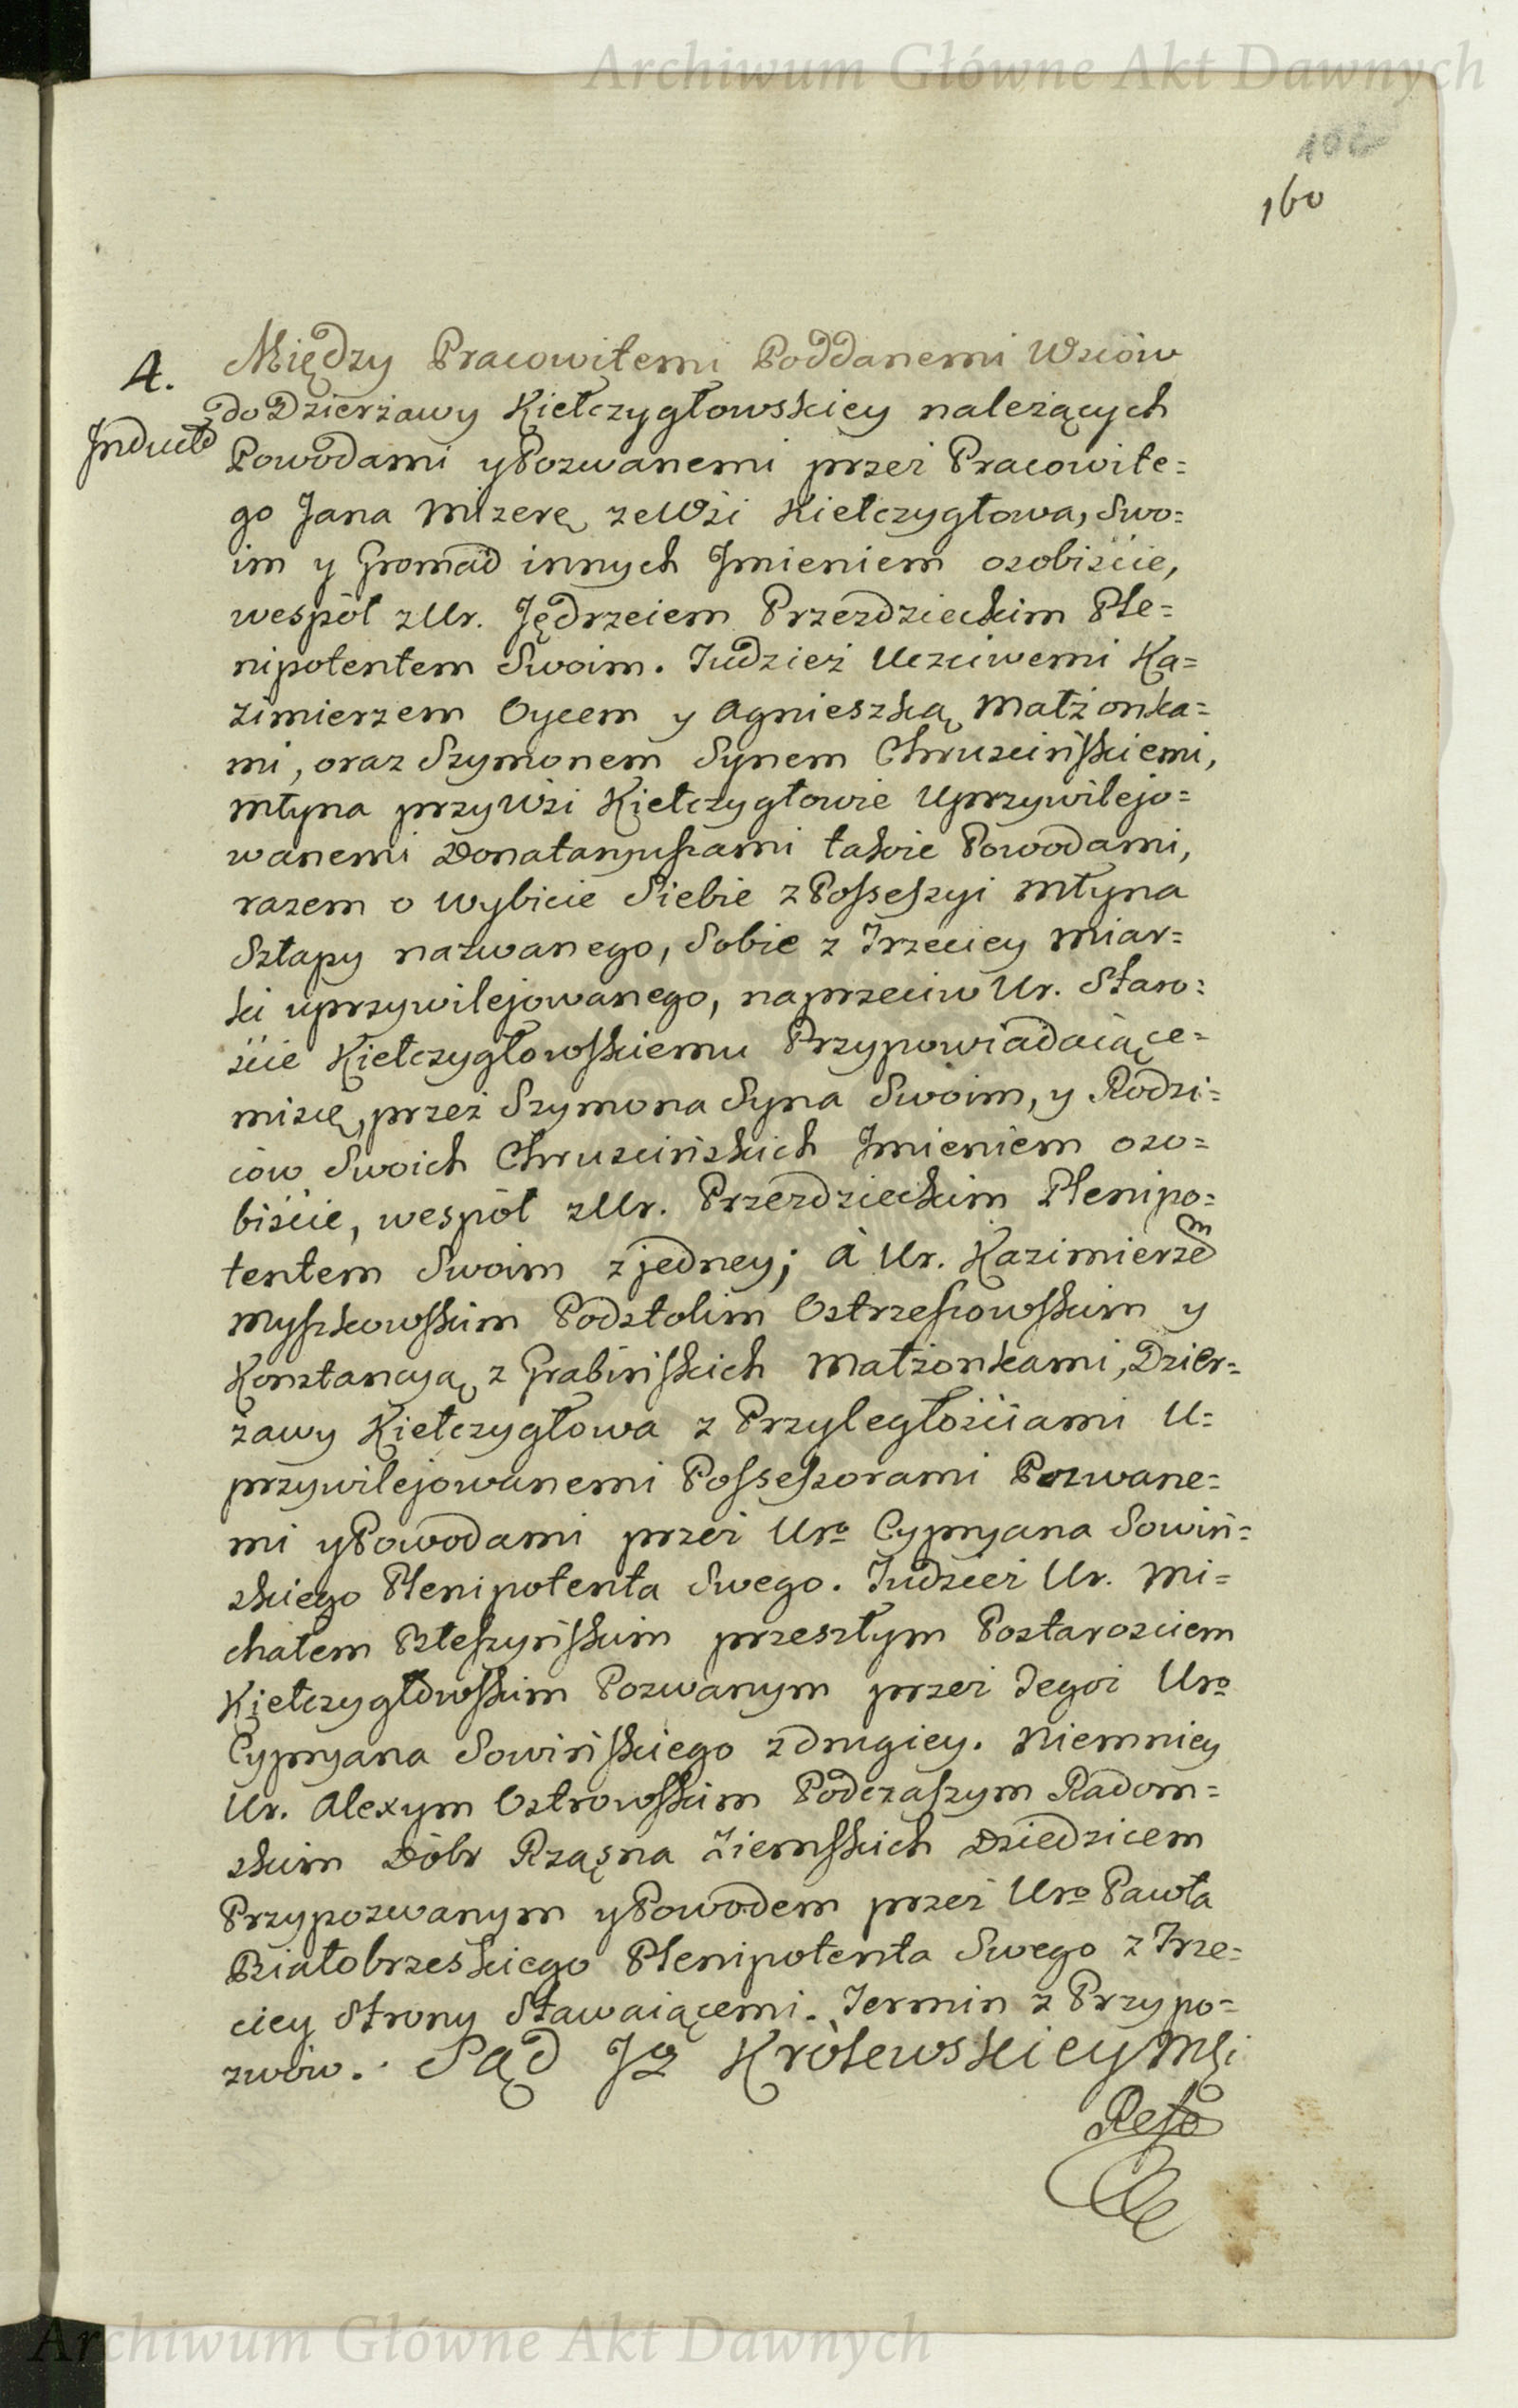 Archiwum Główne Akt Dawnych
160
4. Między Pracowitemi Poddanemi Wsiów
do Dzierżawy Kiełczygłowskiey należących
Induct Powodami y Pozwanemi przez Pracowite=
go Jana Mizerę ze Wśi Kiełczygłowa, Swo=
im y Gromad innych Jmieniem osobiście,
wespół z Ur. Jędrzeiem Przezdzieckim Ple=
nipotentem Swoim. Tudzież Uczciwemi Ka=
zimierzem Oycem y Agnieszką Małżonka=
mi, oraz Szymonem Synem Chruscińskiemi,
Młyna przy Wśi Kiełczygłowie Uprzywilejo=
wanemi Donataryuszami także Powodami,
razem o wybicie Siebie z Possessyi Młyna
Szłapy nazwanego, Sobie z Trzeciey Miar=
ki uprzywilejowanego, naprzeciw Ur. Staro=
ście Kiełczygłowskiemu Przypowiadaiące=
misię, przez Szymona Syna Swoim, y Rodzi=
ców Swoich Chruscińskich Jmieniem oso=
biście, wespół z Ur. Przezdzieckim Plenipo=
tentem Swoim z jedney; à Ur. Kazimierzem
Myszkowskim Podstolim Ostrzeszowskim y
Konstancyą z Grabińskich Małżonkami, Dzier=
żawy Kiełczygłowa z Przyległościami U=
przywilejowanemi Possessorami Pozwane=
mi y Powodami przez Uro Cypryana Sowiń=
skiego Plenipotenta Swego. Tudzież Ur. Mi=
chałem Błeszyńskim przeszłym Postarosciem
Kiełczygłowskim Pozwanym przez Tegoż Uro
Cypryana Sowińskiego z drugiey. Niemniey
Ur. Alexym Ostrowskim Podczaszym Radom=
skim Dóbr Rząsna Ziemskich Dziedzicem
Przypozwanym y Powodem przez Uro Pawła
Białobrzeskiego Plenipotenta Swego z Trze=
ciey Strony Stawaiącemi. Termin z Przypo=
zwów. Sąd JK Królewskiey Mśi
Archiwum Główne Akt Dawnych